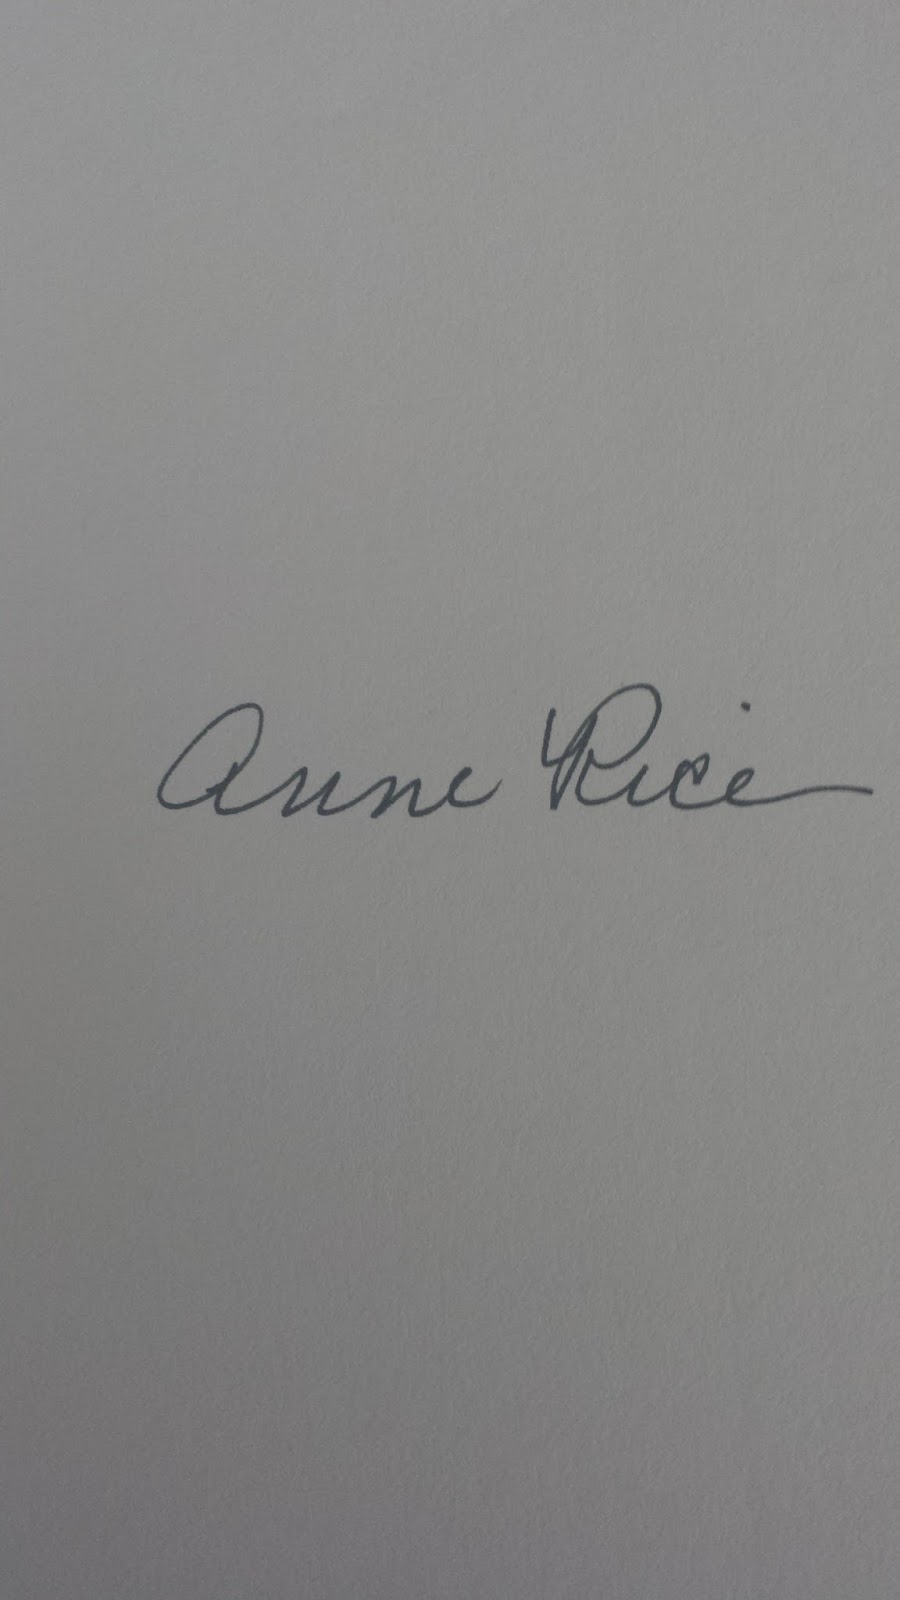 Anne Rice